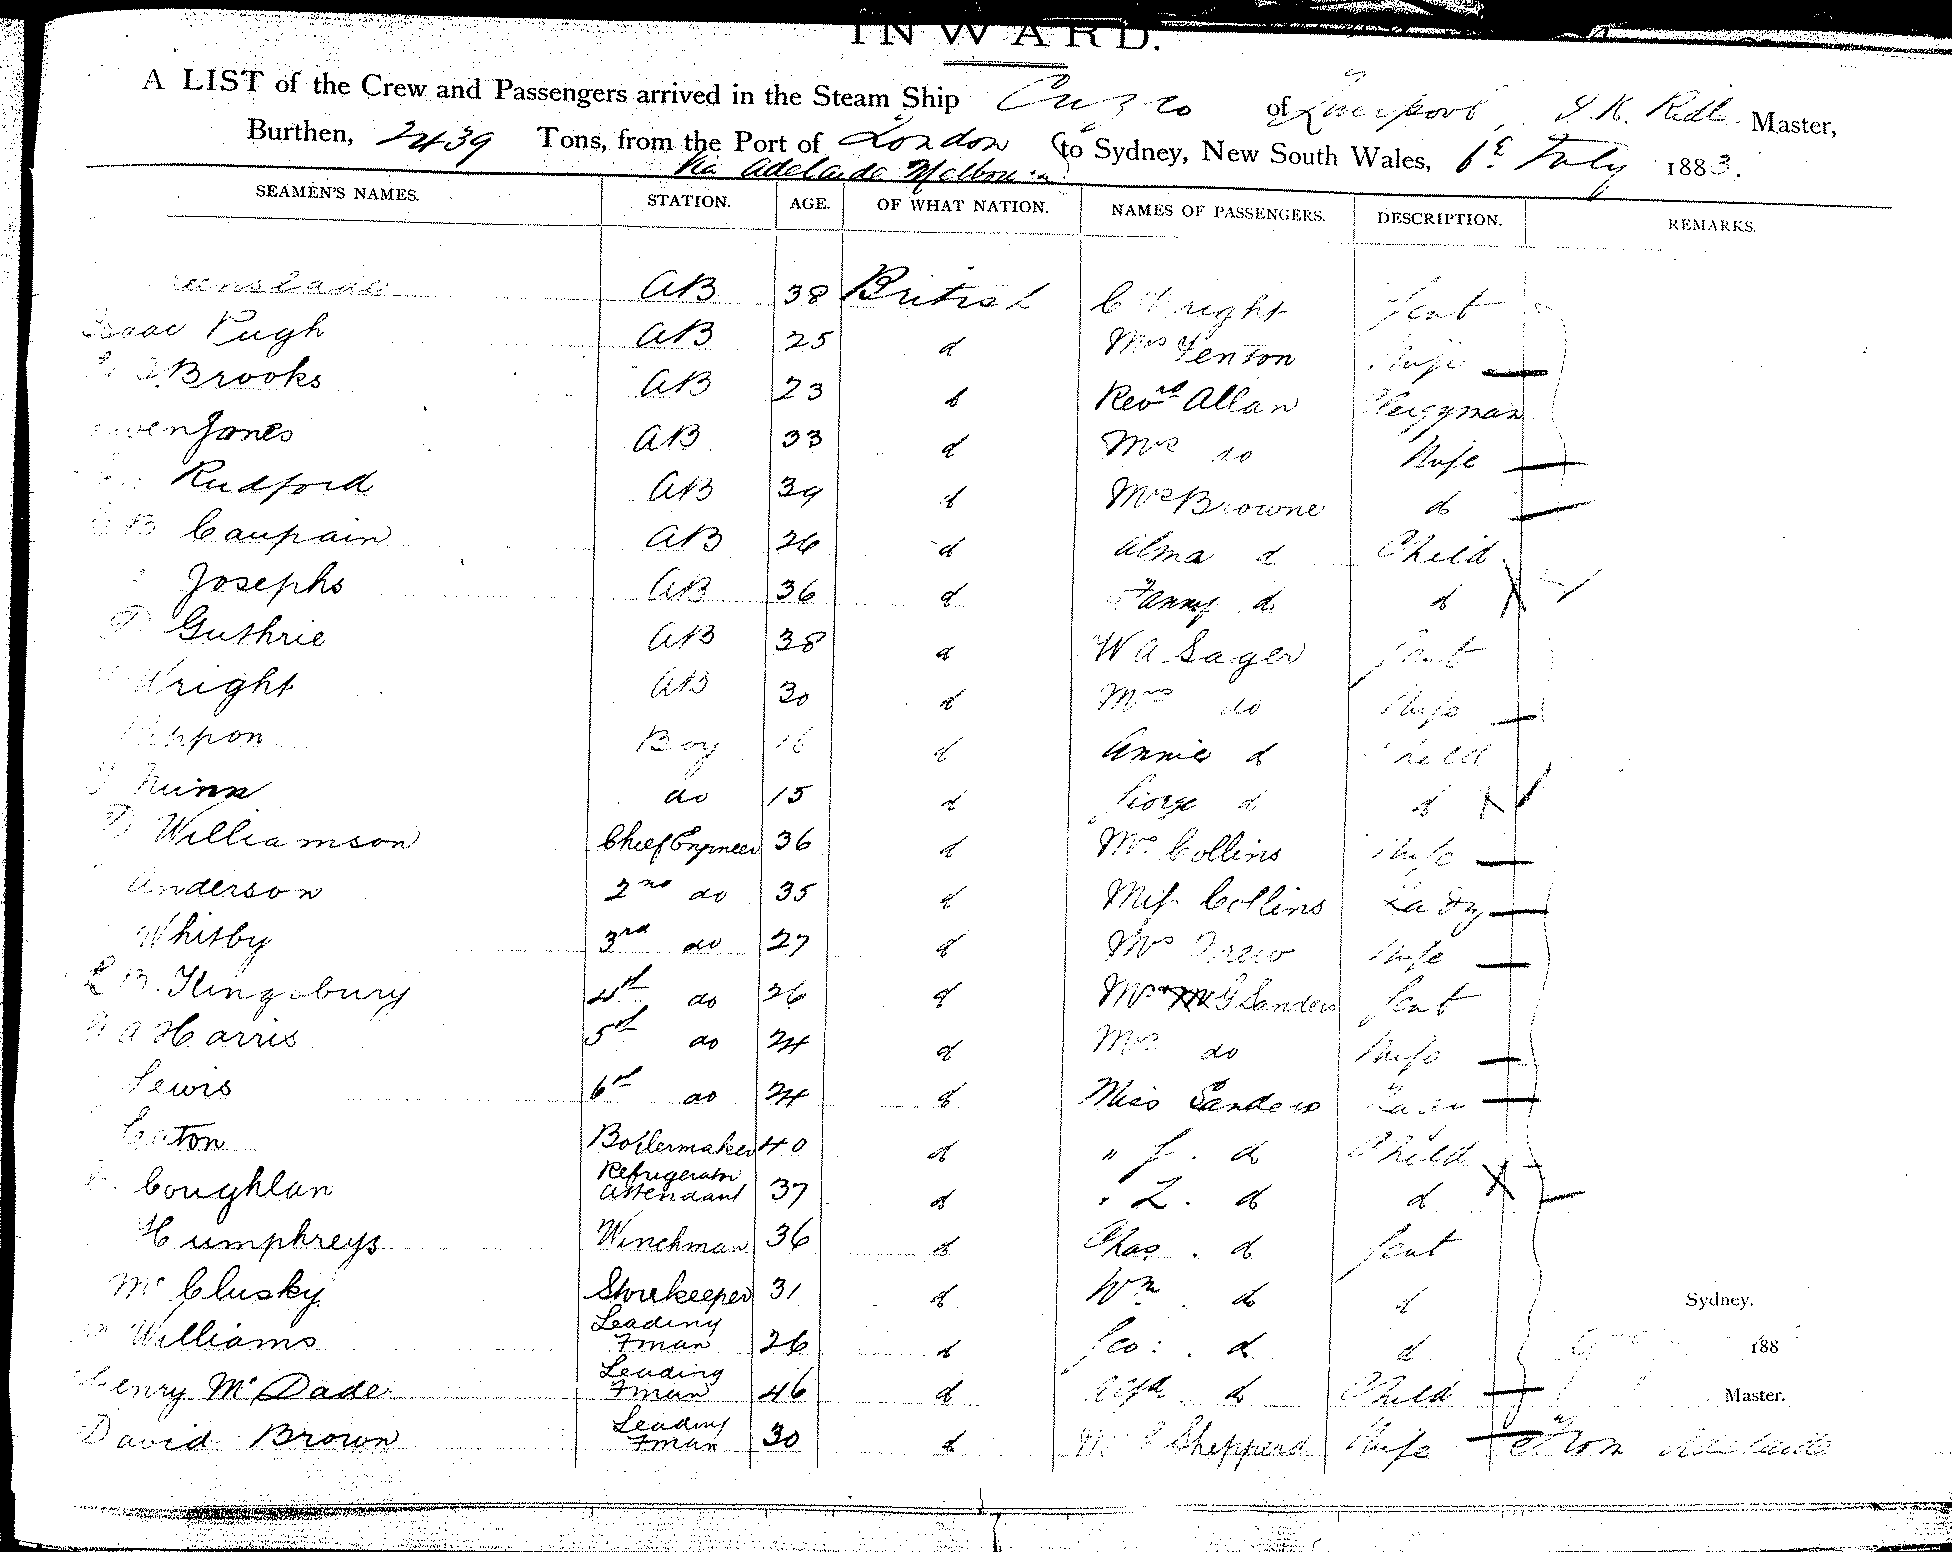 INWARD.
A LIST of the Crew and Passengers arrived in the Steam Ship Cuzco of Liverpool, Master,
Burthen, 2439 Tons, from the Port of London to Sydney, New South Wales, 6th July 1883.
Via Adelaide Melbourne
SEAMEN'S NAMES. STATION. AGE. OF WHAT NATION. NAMES OF PASSENGERS. DESCRIPTION. REMARKS.
AB 38 British C Wright Gent
Isaac Pugh AB 25 d Mrs Fenton Wife
Brooks AB 23 d Revd Allan Clergyman
Owen Jones AB 33 d Mrs do Wife
Rudford AB 39 d Mrs Browne d
B Caupain AB 26 d Alma d Child
Josephs AB 36 d Fanny d d
Guthrie AB 38 d W A Sager Gent
Wright AB 30 d Mrs do Wife
Boy 16 d Annie d Child
Nunn do 15 d George d d
Williamson Chief Engineer 36 d Mrs Collins Wife
Anderson 2nd do 35 d Miss Collins Lady
Whitby 3rd do 27 d Mrs Drew Wife
B. Kingsbury 4th do 26 d Mr G Sanders Gent
A Harris 5th do 24 d Mrs do Wife
Lewis 6th do 24 d Miss Sanders Lady
Boilermaker 40 d " J. d Child
Coughlan Refrigerator Attendant 37 d " L. d d
Humphreys Winchman 36 d Chas. d Gent
McClusky Storekeeper 31 d Wm. d d Sydney.
Williams Leading Fman 26 d Geo: . d d 188
Henry McDade Leading Fman 46 d d Child Master.
David Brown Leading Fman 30 d Shepperd Wife From Adelaide